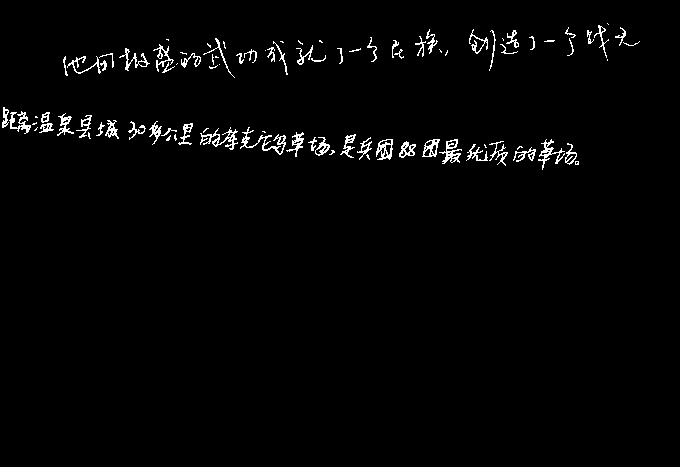 他用极盛的武功成就了一个民族,创造了一个战无
距离温泉县城30多公里的孝克尔特草场,是兵团88团最优质的草场。